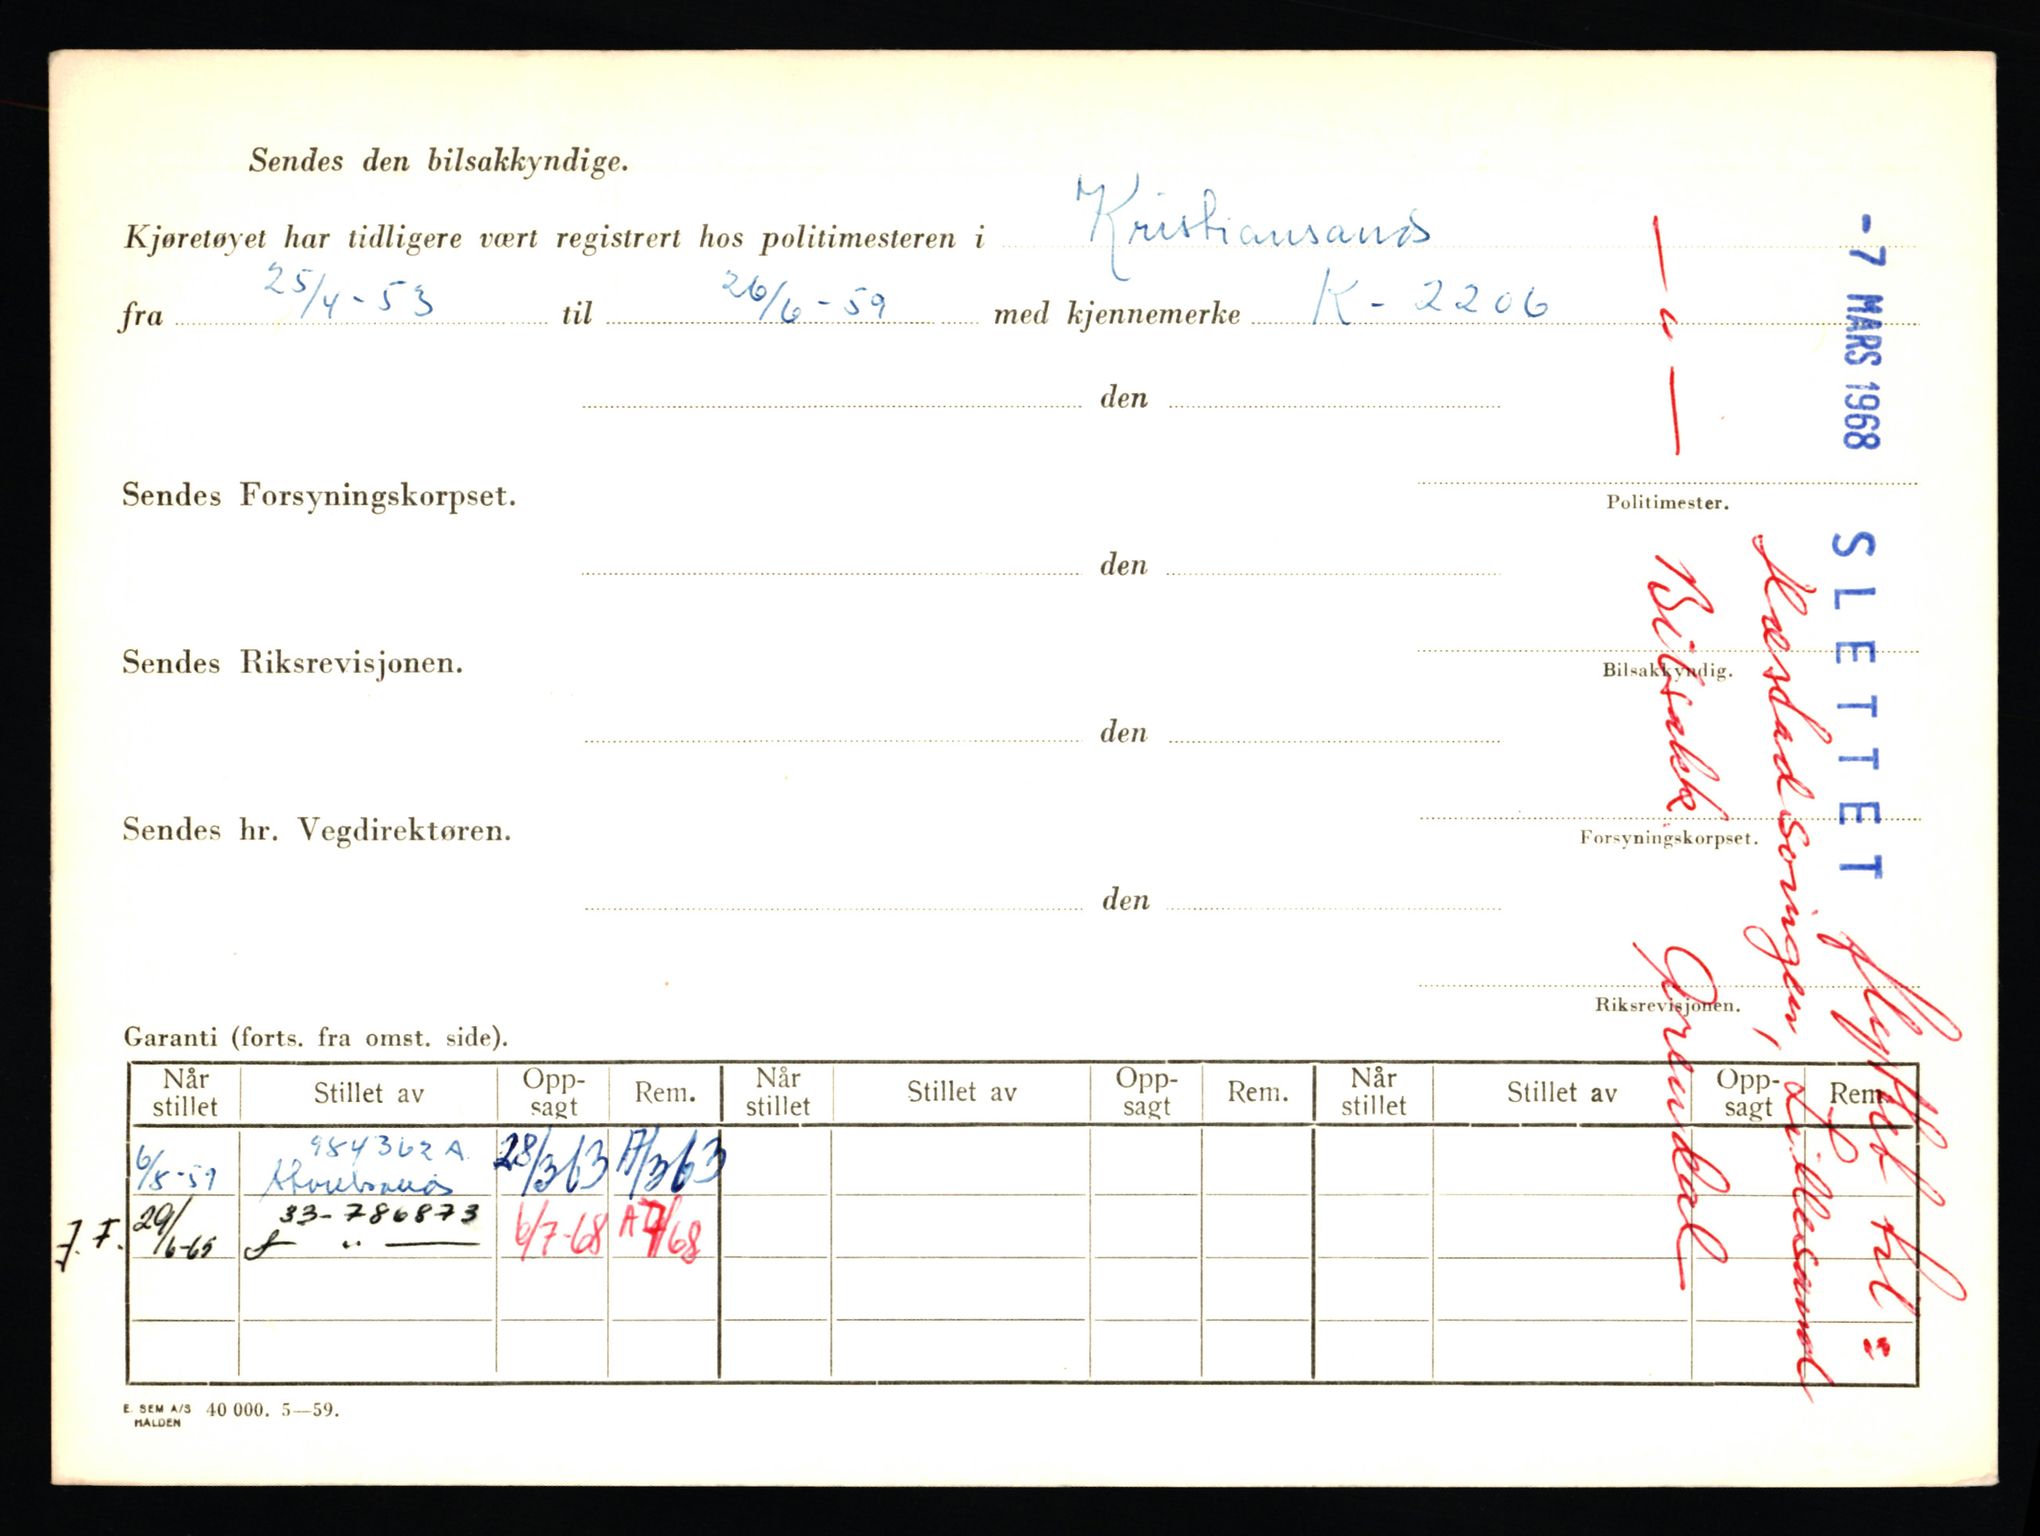 Sendes den bilsakkyndige.
Kjøretøyet har tidligere vært registrert hos politimesteren i Kristiansand
fra 25/4-53 til 26/6-59 med kjennemerke K-2206
den
Politimester.
Sendes Forsyningskorpset.
den
Bilsakkyndig.
Sendes Riksrevisjonen.
den
Forsyningskorpset.
Sendes hr. Vegdirektøren.
den
Riksrevisjonen.
Garanti (forts. fra omst. side).
Når stillet Stillet av Opp-sagt Rem. Når stillet Stillet av Opp-sagt Rem. Når stillet Stillet av Opp-sagt Rem.
6/8-59 984362 A. 28/363 A/363
J. F. 29/6-65 33-786873 6/7-68 A7/68
— " —
E. SEM A/S HALDEN 40 000. 5—59.
-7 MARS 1968 SLETTET flyttet til:
Lillesand
— " — Bilsakk. Arendal